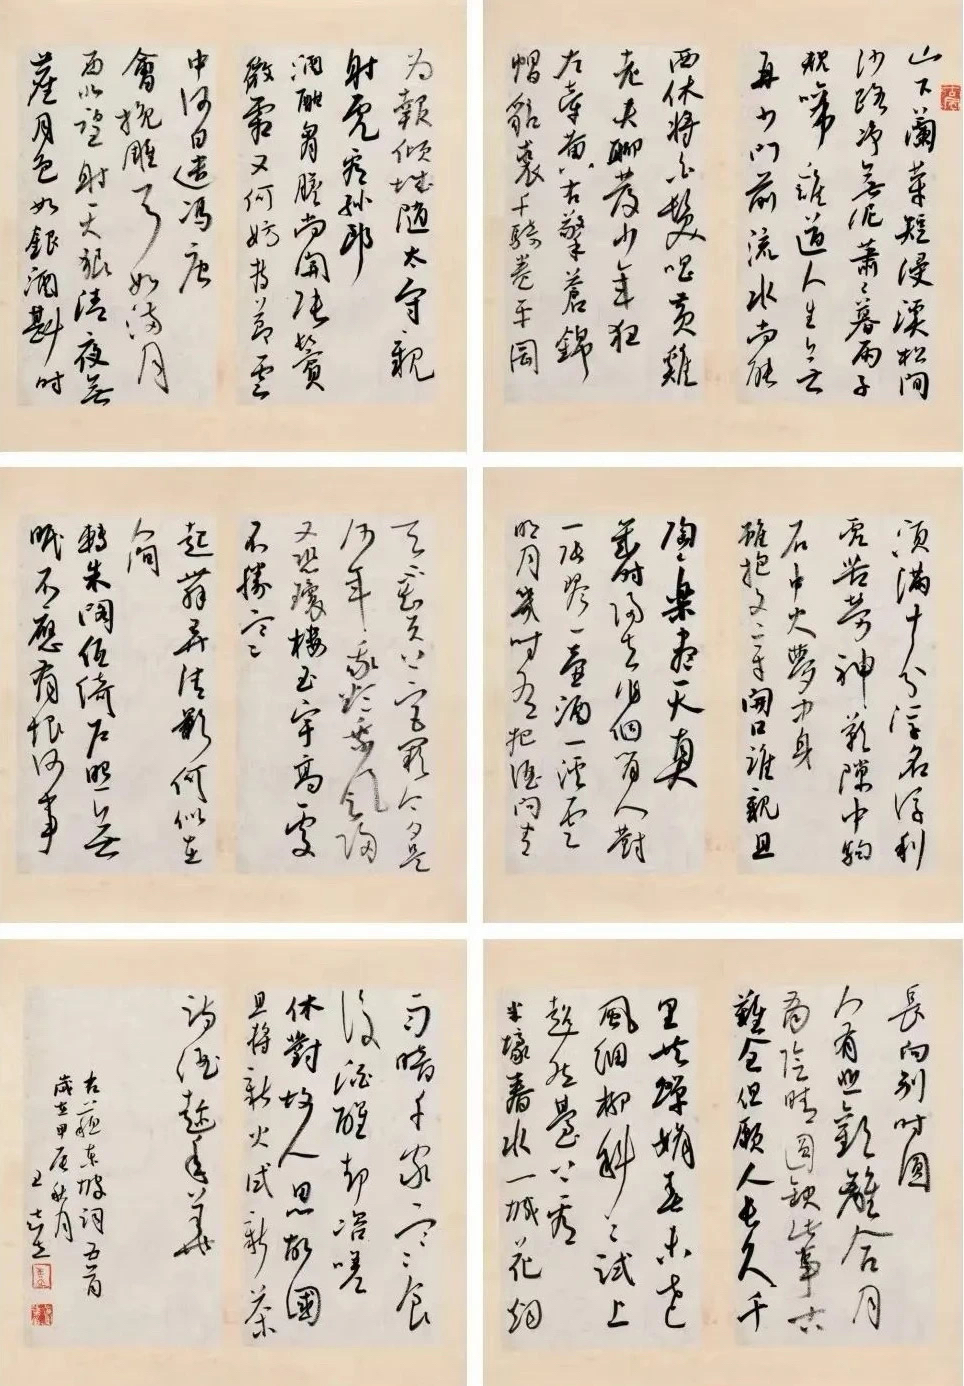 山下蘭芽短浸溪松間
沙路净無泥蕭〻暮雨子
規啼 誰道人生無
再少門前流水尚能
西休將白髮唱黃雞
老夫聊發少年狂
左牽黃右擎蒼錦
帽貂裘千騎卷平岡
為報傾城隨太守親
射虎看孫郎
酒酣胸膽尚開張鬢
微霜又何妨持節雲
中何日遣馮唐
會挽雕弓如滿月
西北望射天狼清夜無
塵月色如銀酒斟時
須滿十分浮名浮利
虛苦勞神嘆隙中駒
石中火夢中身
雖抱文章開口誰親且
陶〻樂盡天真
幾時歸去作個閒人對
一張琴一壺酒一溪雲
明月幾時有把酒問青
天不知天上宮闕今夕是
何年我欲乘風歸
又恐瓊樓玉宇高處
不勝寒
起舞弄清影何似在
人間
轉朱閣低綺戶照無
眠不應有恨何事
長向別時圓
人有悲歡離合月
有陰晴圓缺此事古
難全但願人長久千
里共嬋娟春未老
風細柳斜〻試上
超然臺上看
半壕春水一城花烟
雨暗千家寒食
後酒醒却咨嗟
休對故人思故國
且將新火試新茶
詩酒趁年華
右蘇東坡詞五首
歲在甲辰秋月
王